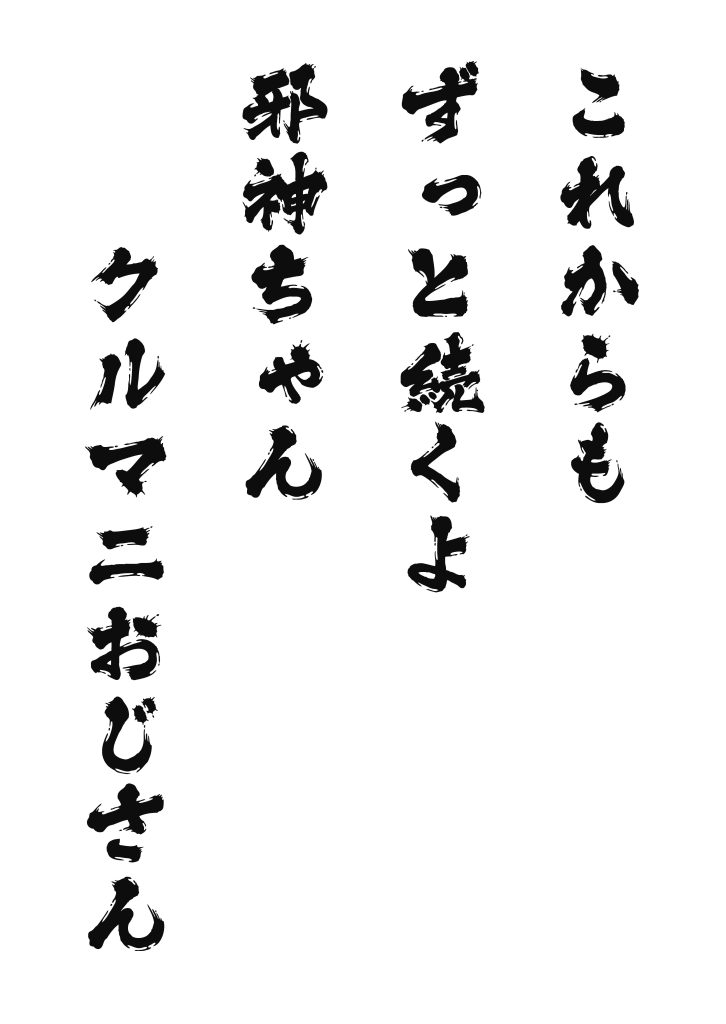 これからも
ずっと続くよ
邪神ちゃん
クルマニおじさん